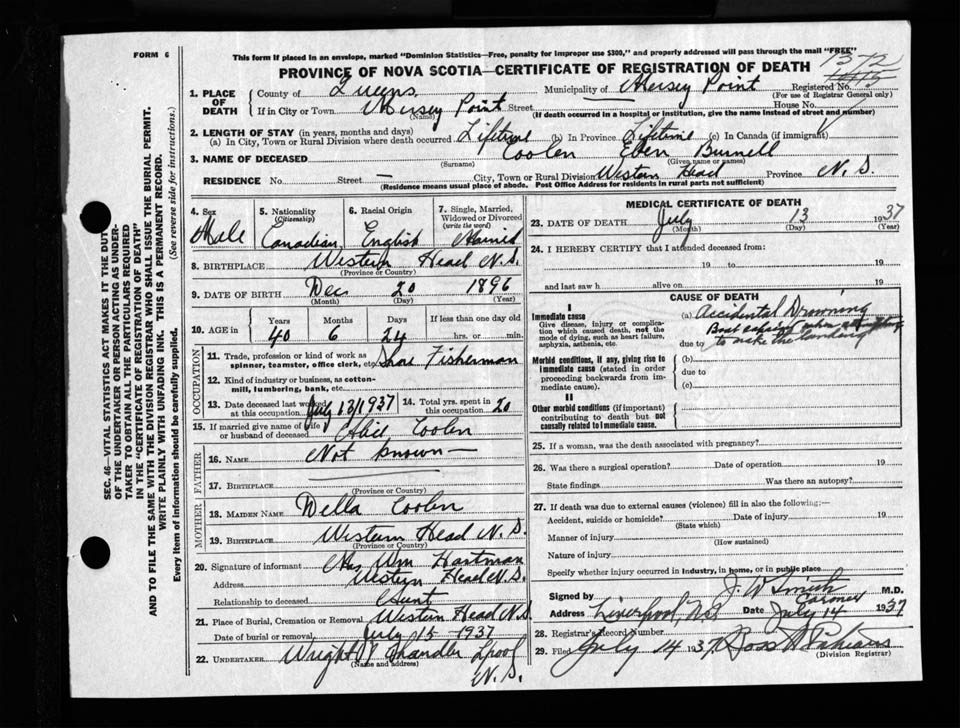 FORM 6
This form if placed in an envelope, marked "Dominion Statistics—Free, penalty for improper use $300," and properly addressed will pass through the mail "FREE"
PROVINCE OF NOVA SCOTIA—CERTIFICATE OF REGISTRATION OF DEATH
1372
Registered No.
(For use of Registrar General only)
1. PLACE OF DEATH
County of Queens Municipality of Mersey Point
If in City or Town Mersey Point Street House No.
(Name) (If death occurred in a hospital or institution, give the name instead of street and number)
2. LENGTH OF STAY (in years, months and days)
(a) In City, Town or Rural Division where death occurred Lifetime (b) In Province Lifetime (c) In Canada (if immigrant)
3. NAME OF DECEASED Coolen Eben Burnell
(Surname) (Given name or names)
RESIDENCE No. Street — City, Town or Rural Division Western Head Province N.S.
(Residence means usual place of abode. Post Office Address for residents in rural parts not sufficient)
SEC. 46—VITAL STATISTICS ACT MAKES IT THE DUTY
OF THE UNDERTAKER OR PERSON ACTING AS UNDER-
TAKER TO OBTAIN ALL THE PARTICULARS REQUIRED
IN THE "CERTIFICATE OF REGISTRATION OF DEATH"
AND TO FILE THE SAME WITH THE DIVISION REGISTRAR WHO SHALL ISSUE THE BURIAL PERMIT.
WRITE PLAINLY WITH UNFADING INK. THIS IS A PERMANENT RECORD.
Every item of information should be carefully supplied. (See reverse side for instructions.)
4. Sex Male
5. Nationality (Citizenship) Canadian
6. Racial Origin English
7. Single, Married, Widowed or Divorced (write the word) Married
8. BIRTHPLACE Western Head N.S.
(Province or Country)
9. DATE OF BIRTH Dec 20 1896
(Month) (Day) (Year)
10. AGE in Years Months Days If less than one day old
40 6 24 hrs. or min.
OCCUPATION
11. Trade, profession or kind of work as spinner, teamster, office clerk, etc. Shore Fisherman
12. Kind of industry or business, as cotton-mill, lumbering, bank, etc.
13. Date deceased last worked at this occupation July 12/1937 14. Total yrs. spent in this occupation 20
15. If married give name of wife or husband of deceased Coolen
FATHER
16. NAME Not known—
17. BIRTHPLACE
(Province or Country)
MOTHER
18. MAIDEN NAME Della Coolen
19. BIRTHPLACE Western Head N.S.
(Province or Country)
20. Signature of informant Mrs Wm Hartman
Address Western Head N.S.
Relationship to deceased Aunt
21. Place of Burial, Cremation or Removal Western Head N.S.
Date of burial or removal July 15 1937
22. UNDERTAKER Wright V Chandler Lpool
(Name and address) N.S.
MEDICAL CERTIFICATE OF DEATH
23. DATE OF DEATH July 13 1937
(Month) (Day) (Year)
24. I HEREBY CERTIFY that I attended deceased from:
19 to 19
and last saw h alive on 19
CAUSE OF DEATH
I
Immediate cause
Give disease, injury or complication which caused death, not the mode of dying, such as heart failure, asphyxia, asthenia, etc.
(a) Accidental Drowning
Boat when attempting
due to to make the landing
Morbid conditions, if any, giving rise to immediate cause (stated in order proceeding backwards from immediate cause).
(b)
due to
(c)
II
Other morbid conditions (if important) contributing to death but not causally related to immediate cause.
25. If a woman, was the death associated with pregnancy?
26. Was there a surgical operation? Date of operation 19
State findings Was there an autopsy?
27. If death was due to external causes (violence) fill in also the following:—
Accident, suicide or homicide? Date of injury 19
(State which)
Manner of injury
(How sustained)
Nature of injury
Specify whether injury occurred in industry, in home, or in public place
Signed by J. W Smith M.D.
Coroner
Address Liverpool, N.S. Date July 14 1937
28. Registrar's Record Number
29. Filed July 14 1937
(Division Registrar)